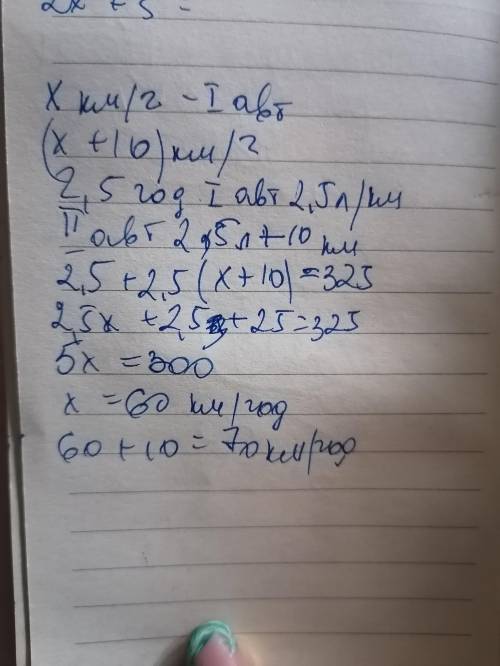 2x + 5 =
x км/г - I авт
(x + 10) км/г
2,5 год I авт 2,5л/км
II авт 2,5л + 10 км
2,5 + 2,5 (x + 10) = 325
2,5x + 2,5 + 25 = 325
5x = 300
x = 60 км/год
60 + 10 = 70 км/год